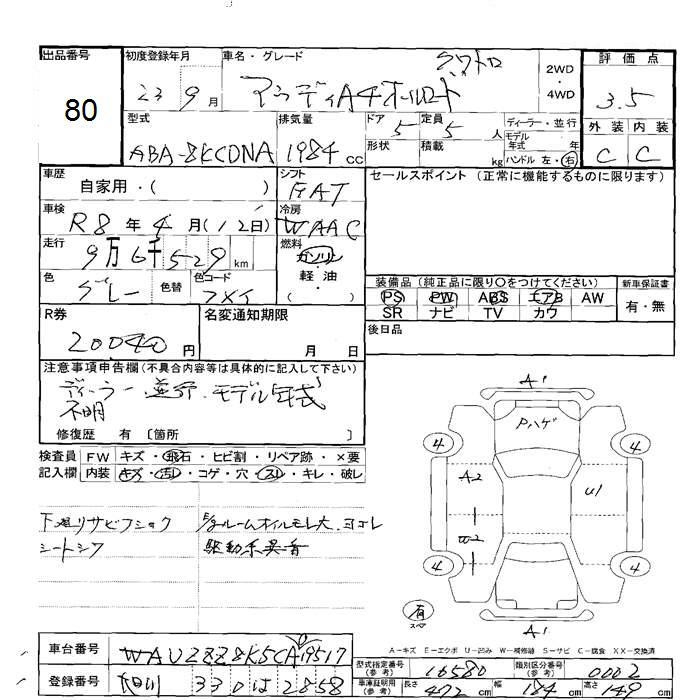 出品番号
80
初度登録年月
23 9月
車名・グレード
クワトロ
アウディA4オールロード
2WD
・
4WD
評価点
3.5
型式
ABA-8KCDNA
排気量
1984 cc
ドア 5
定員 5 人
形状
積載 kg
ディーラー・並行
モデル年式 年
ハンドル 左・右
外装 内装
C C
車歴
自家用・( )
シフト
FAT
車検
R8年4月(12日)
冷房
WAAC
走行
9万6千529km
燃料
ガソリン
・
軽油
・
( )
色
グレー
色替
色コード
R券
20040円
名変通知期限
月 日
セールスポイント (正常に機能するものに限ります)
装備品(純正品に限り○をつけてください)
PS PW ABS エアB AW
SR ナビ TV カワ
新車保証書
有・無
後日品
注意事項申告欄(不具合内容等は具体的に記入して下さい)
ディーラー並行.モデル年式
不明
修復歴 有 〔箇所 〕
検査員記入欄
FW キズ・飛石・ヒビ割・リペア跡・×要
内装 キズ・汚レ・コゲ・穴・スレ・キレ・破レ
下廻リサビフショク
シートシワ
E/gルームオイルモレ大.ヨゴレ
駆動系異音
A1
Pハゲ
4 4
A2
U1
W2
4 4
有
スペア
A1
A-キズ E-エクボ U-凹み W-補修跡 S-サビ C-腐食 XX-交換済
車台番号
WAUZZZ8K5CA119517
登録番号
330 は 2858
型式指定番号(参考)
16580
類別区分番号(参考)
0002
車庫証明用(参考)
長さ 472cm
幅 184cm
高さ 149cm